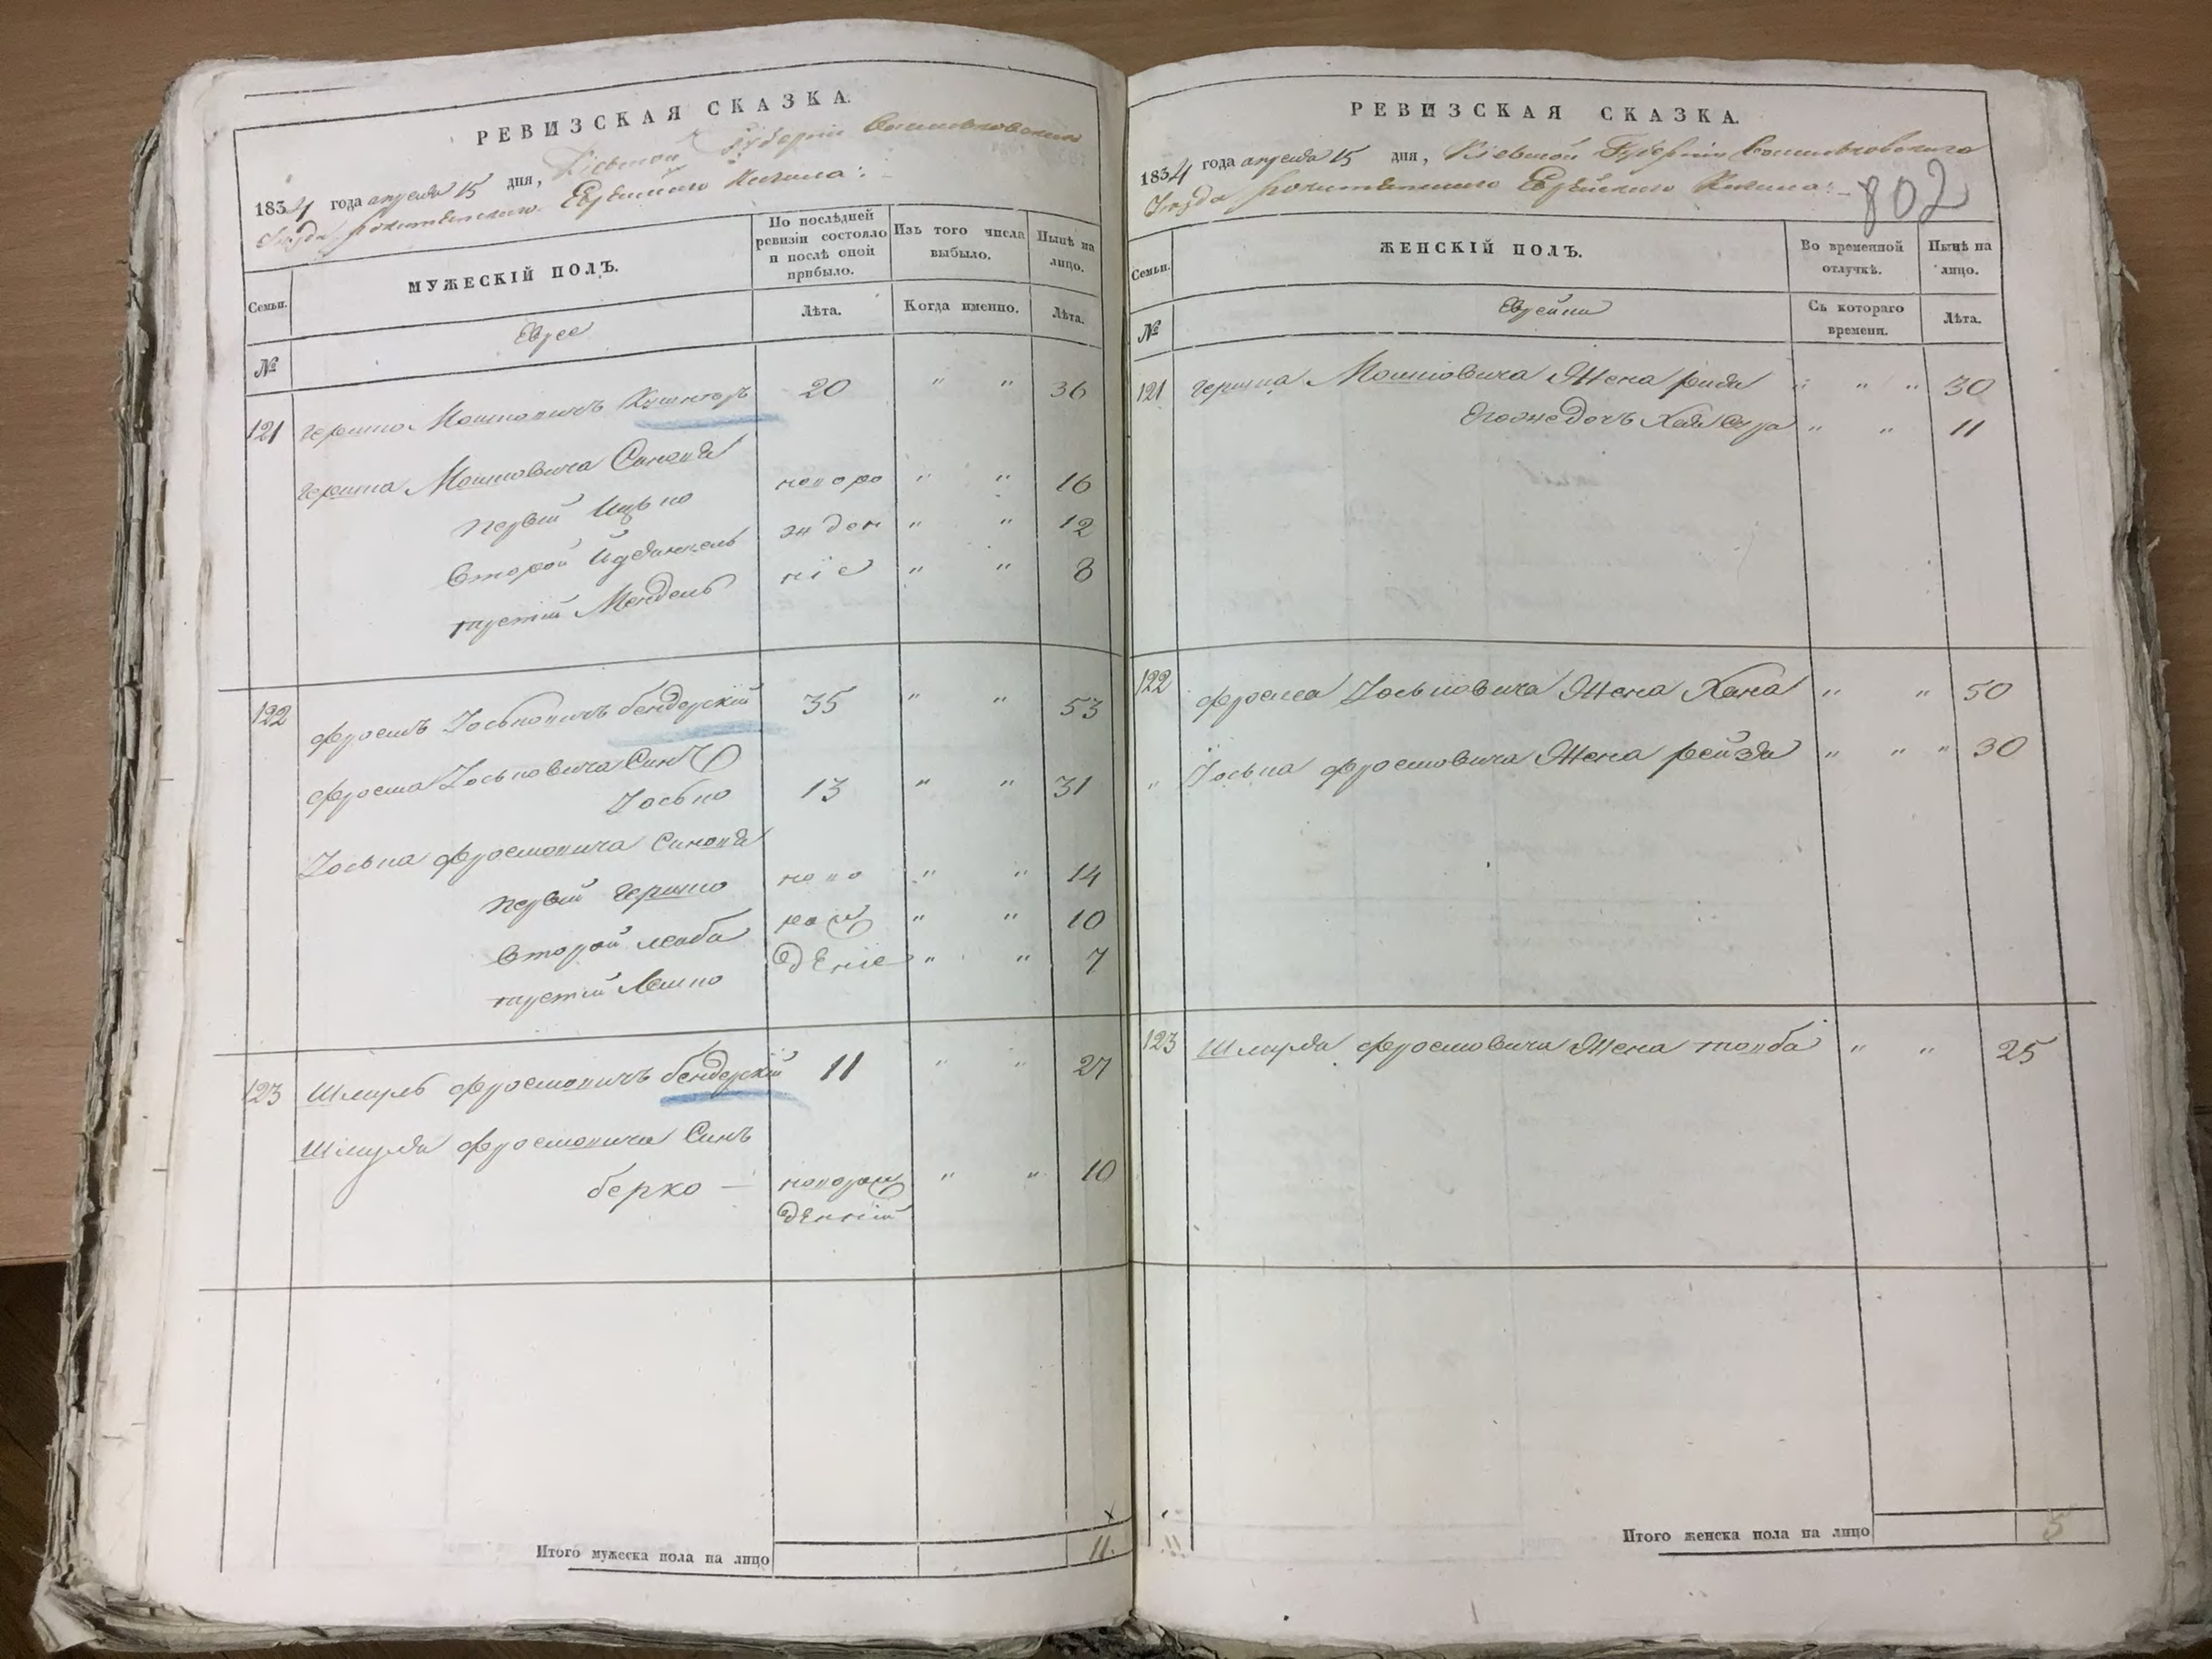 РЕВИЗСКАЯ СКАЗКА.
1834 года апреля 15 дня, Кіевской Губерніи Васильковскаго
Уѣзда Рокитянскаго Еврейского Кагала:
Семьи.
МУЖЕСКІЙ ПОЛЪ.
По послѣдней ревизіи состояло и послѣ оной прибыло.
Изъ того числа выбыло.
Нынѣ на лицо.
№
Еврее
Лѣта.
Когда именно.
Лѣта.
121 Гершко Мошковичъ 20 " " 36
Гершка Мошковича Синовя
первій Ицько новоро " " 16
Второй жден " " 12
третій Мендель ніе " " 8
122 Фроимъ Іоськовичъ бендерскій 35 " " 53
Фроима Іоськовича Синъ
Іосько 13 " " 31
Іоська Фроимовича Синовя
первій Гершко ново " " 14
Второй лейба рож " " 10
третій Мошко деніе " " 7
123 Шмуль Фроимовичъ бендерскій 11 " " 27
Шмуля Фроимовича Синъ
берко — новорож " " 10
денній
Итого мужеска пола на лицо 11.
РЕВИЗСКАЯ СКАЗКА.
1834 года апреля 15 дня, Кіевской Губерніи Васильковского
Уѣзда Рокитянского Еврейского Кагала:
802
Семьи.
ЖЕНСКІЙ ПОЛЪ.
Во временной отлучкѣ.
Нынѣ на лицо.
№
Еврейки
Съ котораго времени.
Лѣта.
121 Гершка Мошковича Жена " " " 30
Егожедочь Хая Сура " " 11
122 Фроима Іоськовича Жена Хана " " 50
" Іоська Фроимовича Жена рейзя " " " 30
123 Шмуля Фроимовича Жена товба " " 25
Итого женска пола на лицо 5